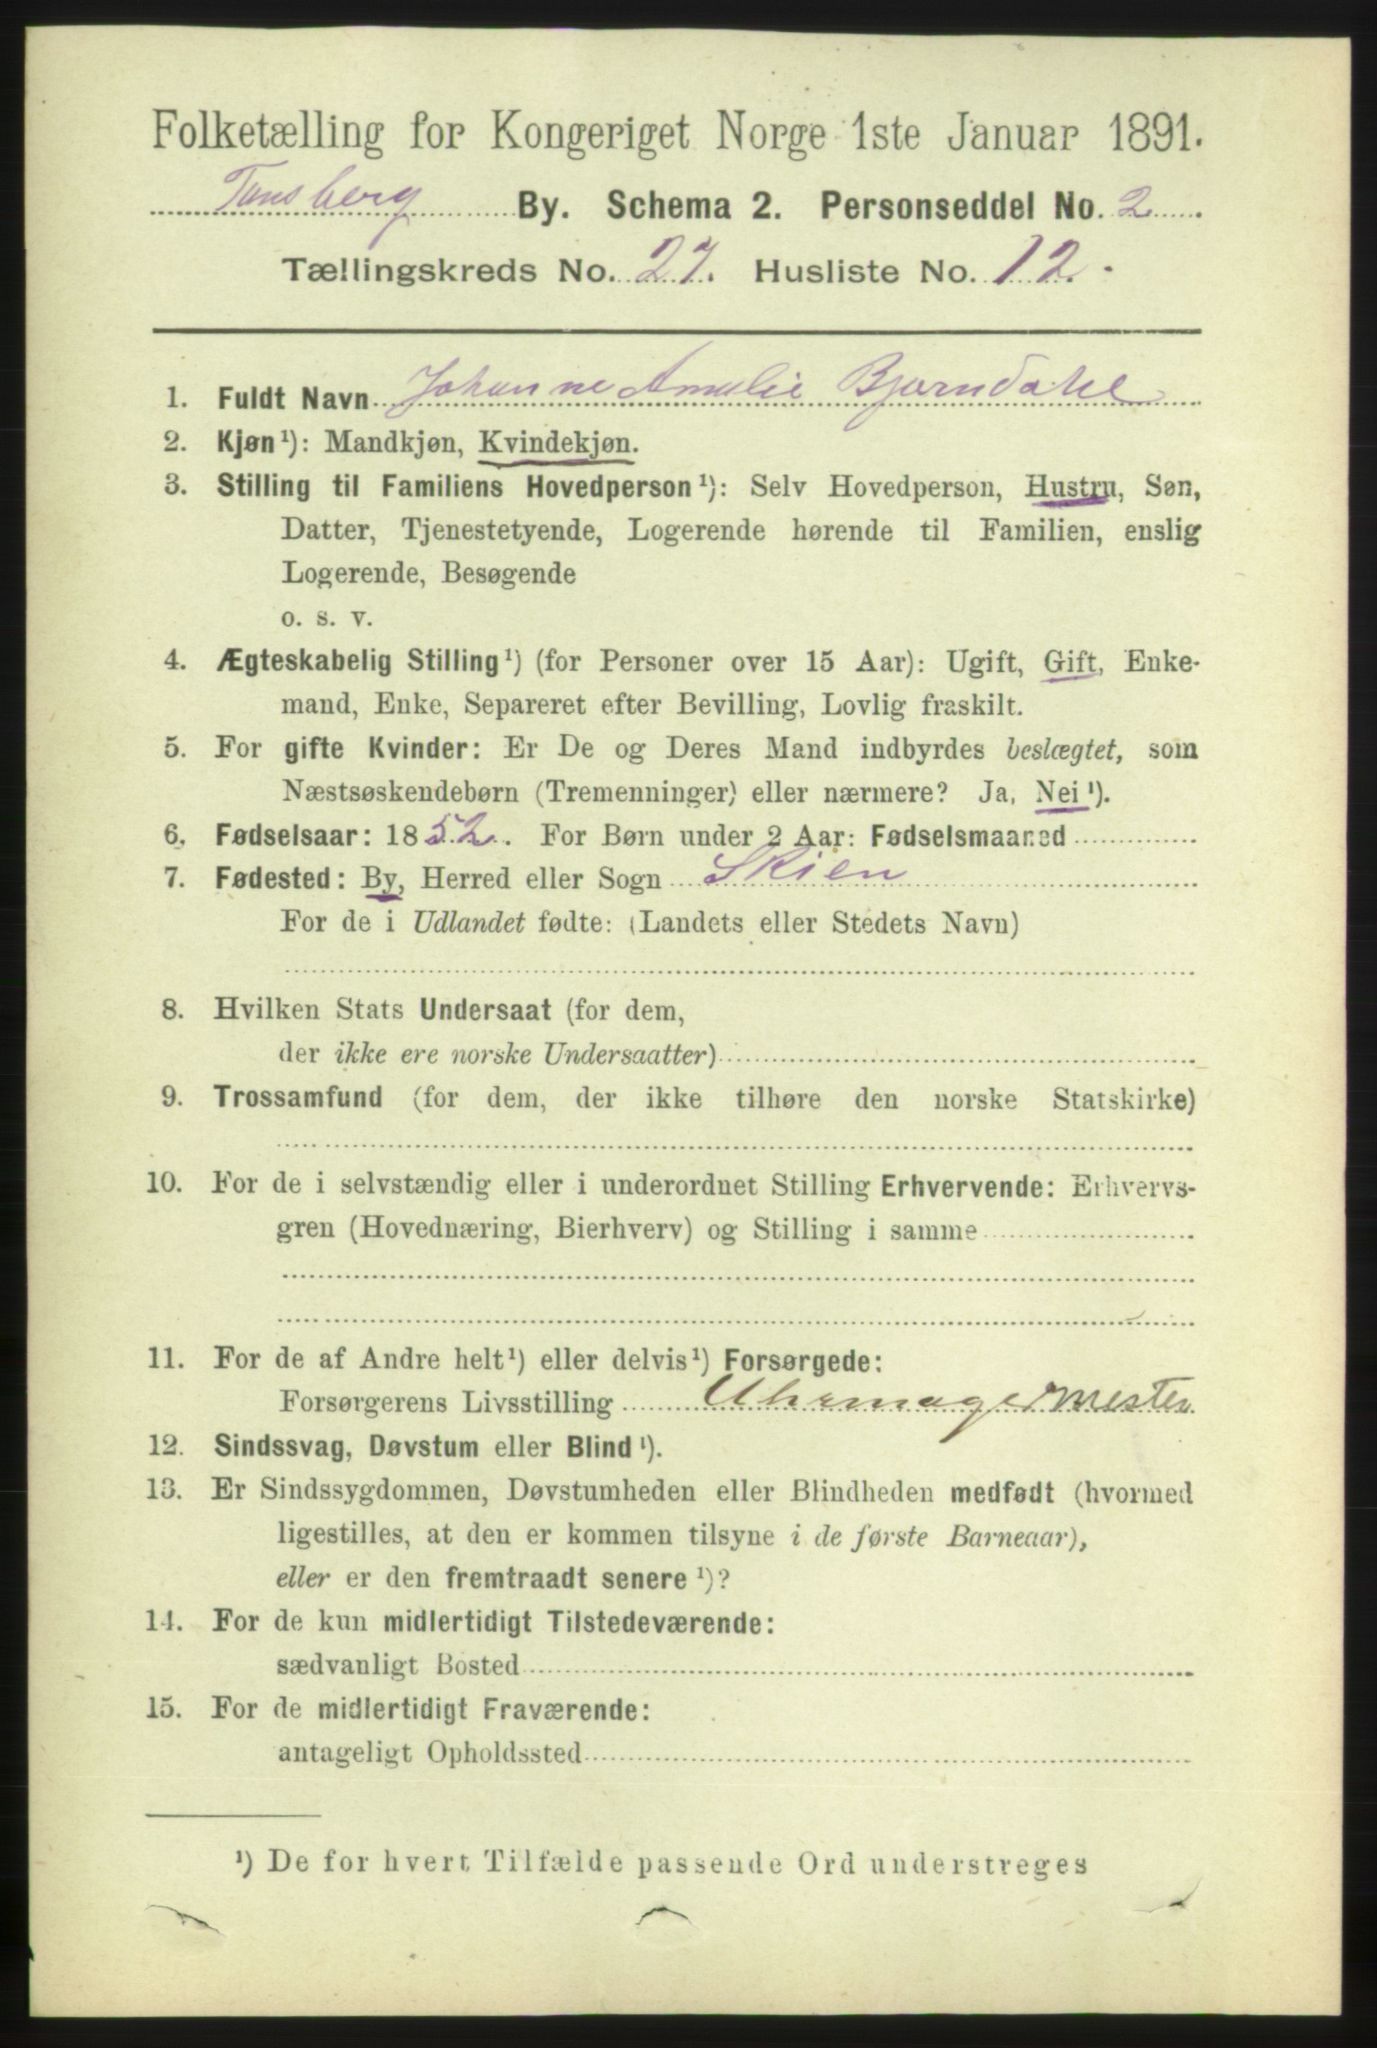 Folketælling for Kongeriget Norge 1ste Januar 1891.
Tønsberg By. Schema 2. Personseddel No. 2
Tællingskreds No. 27. Husliste No. 12.
1. Fuldt Navn Johanne Amalie Bjørndahl
2. Kjøn¹): Mandkjøn, Kvindekjøn.
3. Stilling til Familiens Hovedperson¹): Selv Hovedperson, Hustru, Søn,
Datter, Tjenestetyende, Logerende hørende til Familien, enslig
Logerende, Besøgende
o. s. v.
4. Ægteskabelig Stilling¹) (for Personer over 15 Aar): Ugift, Gift, Enke-
mand, Enke, Separeret efter Bevilling, Lovlig fraskilt.
5. For gifte Kvinder: Er De og Deres Mand indbyrdes beslægtet, som
Næstsøskendebørn (Tremenninger) eller nærmere? Ja, Nei¹).
6. Fødselsaar: 1852. For Børn under 2 Aar: Fødselsmaaned
7. Fødested: By, Herred eller Sogn Skien
For de i Udlandet fødte: (Landets eller Stedets Navn)
8. Hvilken Stats Undersaat (for dem,
der ikke ere norske Undersaatter)
9. Trossamfund (for dem, der ikke tilhøre den norske Statskirke)
10. For de i selvstændig eller i underordnet Stilling Erhvervende: Erhvervs-
gren (Hovednæring, Bierhverv) og Stilling i samme
11. For de af Andre helt¹) eller delvis¹) Forsørgede:
Forsørgerens Livsstilling Uhrmagermester
12. Sindssvag, Døvstum eller Blind¹).
13. Er Sindssygdommen, Døvstumheden eller Blindheden medfødt (hvormed
ligestilles, at den er kommen tilsyne i de første Barneaar),
eller er den fremtraadt senere¹)?
14. For de kun midlertidigt Tilstedeværende:
sædvanligt Bosted
15. For de midlertidigt Fraværende:
antageligt Opholdssted
¹) De for hvert Tilfælde passende Ord understreges